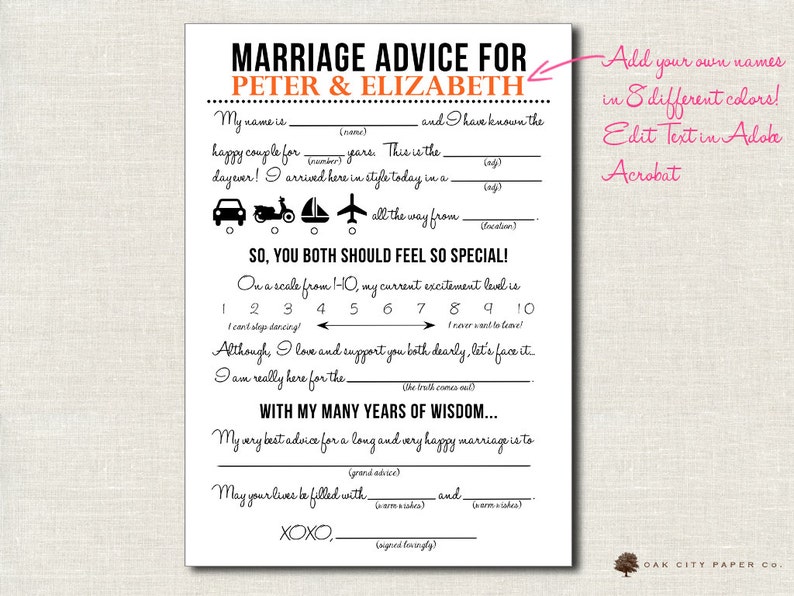 MARRIAGE ADVICE FOR
PETER & ELIZABETH
My name is ____________ and I have known the
(name)
happy couple for ______ years. This is the ____________
(number) (adj)
day ever! I arrived here in style today in a ____________
(adj)
all the way from ____________.
(location)
SO, YOU BOTH SHOULD FEEL SO SPECIAL!
On a scale from 1-10, my current excitement level is
1 2 3 4 5 6 7 8 9 10
I can't stop dancing! I never want to leave!
Although, I love and support you both dearly, let's face it...
I am really here for the ____________.
(the truth comes out)
WITH MY MANY YEARS OF WISDOM...
My very best advice for a long and very happy marriage is to
____________
(grand advice)
May your lives be filled with ____________ and ____________.
(warm wishes) (warm wishes)
XOXO, ____________
(signed lovingly)
Add your own names
in 8 different colors!
Edit Text in Adobe
Acrobat
OAK CITY PAPER Co.